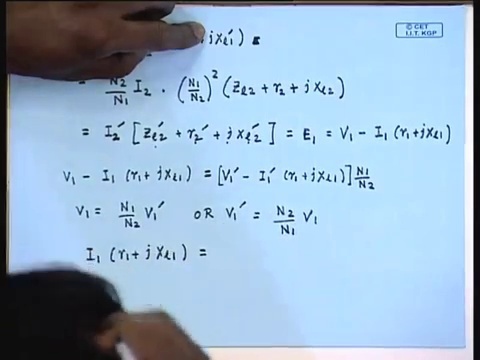 jXl1′)
© CET
I.I.T. KGP
= N2/N1 I2 · (N1/N2)² (Zl2 + r2 + jxl2)
= I2′ [Zl2′ + r2′ + jXl2′] = E1 = V1 − I1 (r1+jxl1)
V1 − I1 (r1 + jxl1) = [V1′ − I1′ (r1 + jxl1)] N1/N2
V1 = N1/N2 V1′ OR V1′ = N2/N1 V1
I1 (r1 + jXl1) =